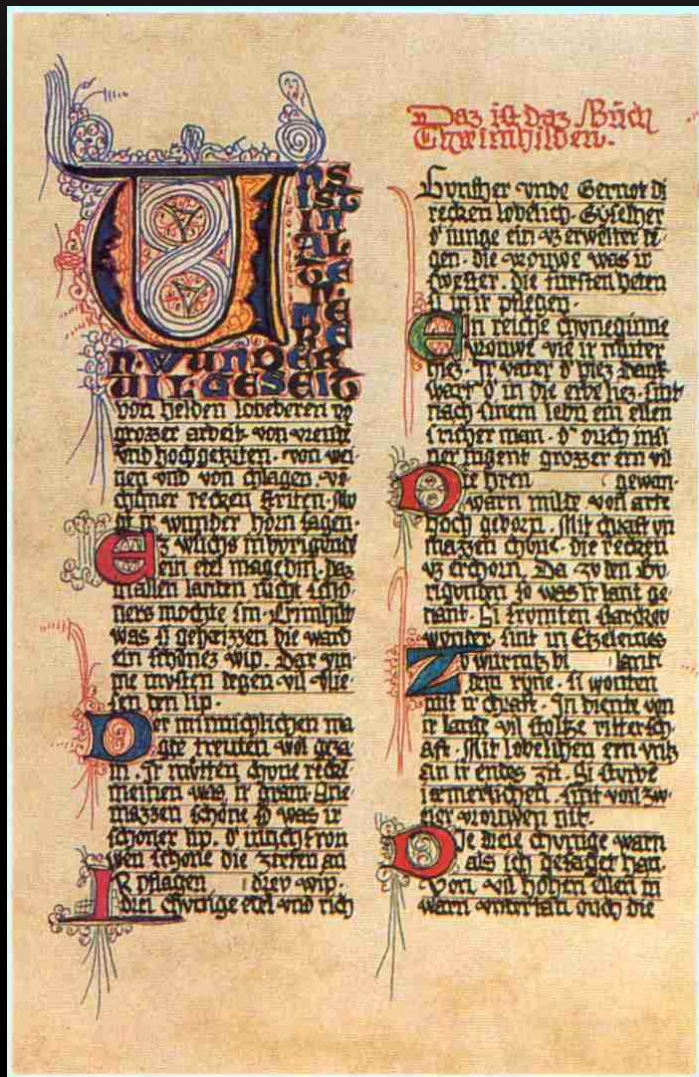 UNS
IST
IN
AL
TE
N · M
RE
N · WUNDER
UIL GESEIT
von helden lobeberen vō
grozzer arbeit · von vreude
vnd hochgetziten · von wei
nen vnd von chlagen · vō
chuner recken striten · Nv
ir wunder horn sagen ·
Ez wuchs in byrigonde
ein etel magedin · daz
in allen landen nicht scho
ners mochte sin · Crimhilt
was si geheizzen die ward
ein schonez wip · Dar vm
me mvsten degen vil vlie
sen den lip ·
Der minnichlichen ma
gde treuten wol geza
m · Ir mvtten chone recke
meinen was ir gram · ane
mazzen schone so was ir
schoner lip · d' iunchfron
wen schone die zirten an
IR pflagen drey wip ·
drei chvnige etel vnd rich
Daz ist daz Bůch
Chreimhilden ·
Gvnther vnde Gernot di
recken lobelich · Gyselher
d' iunge ein vz erwelter de
gen · die vrouwe was ir
swester · die fursten heten
si in ir pflegen ·
Ein reiche chvneginne
vrouwe vte ir muter
hiez · Ir vater d' hiez Dank
wart d' in die erbe liez · sint
nach sinem lebn ein ellen
tricher man · d' ouch in si
ner iugent grozzer ern vil
Die hren gewan ·
warn milte · von arte
hoch geborn · Mit chraft vn
mazzen chone · die recken
vz erchorn · Da zv den Bv
rigonden so was ir lant ge
nant · Si fromten starckev
wonder · sint in Etzeleines
Zv wurmtz bi lant
dem ryne · si wonten
mit ir chraft · In diente von
ir lande vil stoltze rittersch
aft · Mit lobelichen ern vntz
an ir endes zit · Si sturbe
iemerlichen · sint von zw
eier vrouwen nit ·
Die drei chvnige warn
als ich gesaget han ·
Von vil hohen ellen in
warn vntertan ouch die